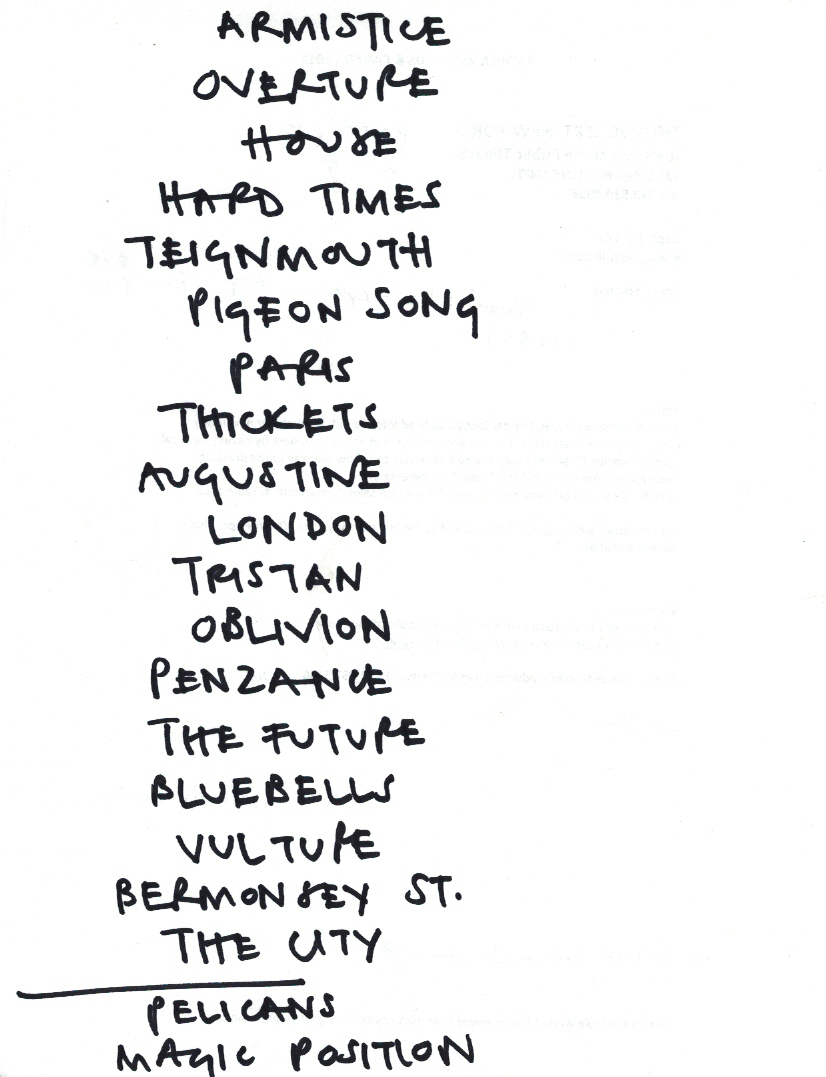 ARMISTICE
OVERTURE
HOUSE
HARD TIMES
TEIGNMOUTH
PIGEON SONG
PARIS
THICKETS
AUGUSTINE
LONDON
TRISTAN
OBLIVION
PENZANCE
THE FUTURE
BLUEBELLS
VULTURE
BERMONDSEY ST.
THE CITY
PELICANS
MAGIC POSITION